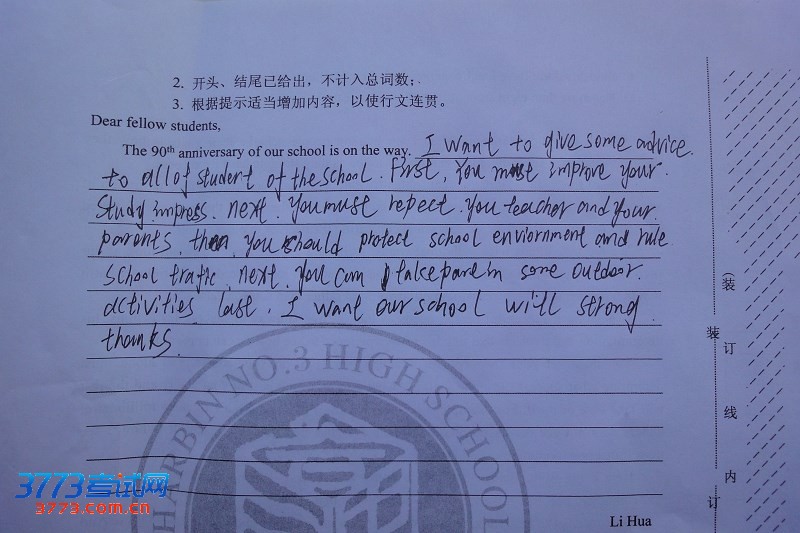 2. 开头、结尾已给出，不计入总词数；
3. 根据提示适当增加内容，以使行文连贯。
Dear fellow students,
The 90th anniversary of our school is on the way. I want to give some advice
to all of student of the school. First, You must improve your
study impress. next. you must repect. you teacher and your
parents. then you should protect school enviornment and rule
school trafic, next, you can take pare in some outdoor.
activities last, I want our school will strong
thanks.
HARBIN NO.3 HIGH SCHOOL
Li Hua
（装
装
订
线
内
订
3773考试网
3773.com.cn